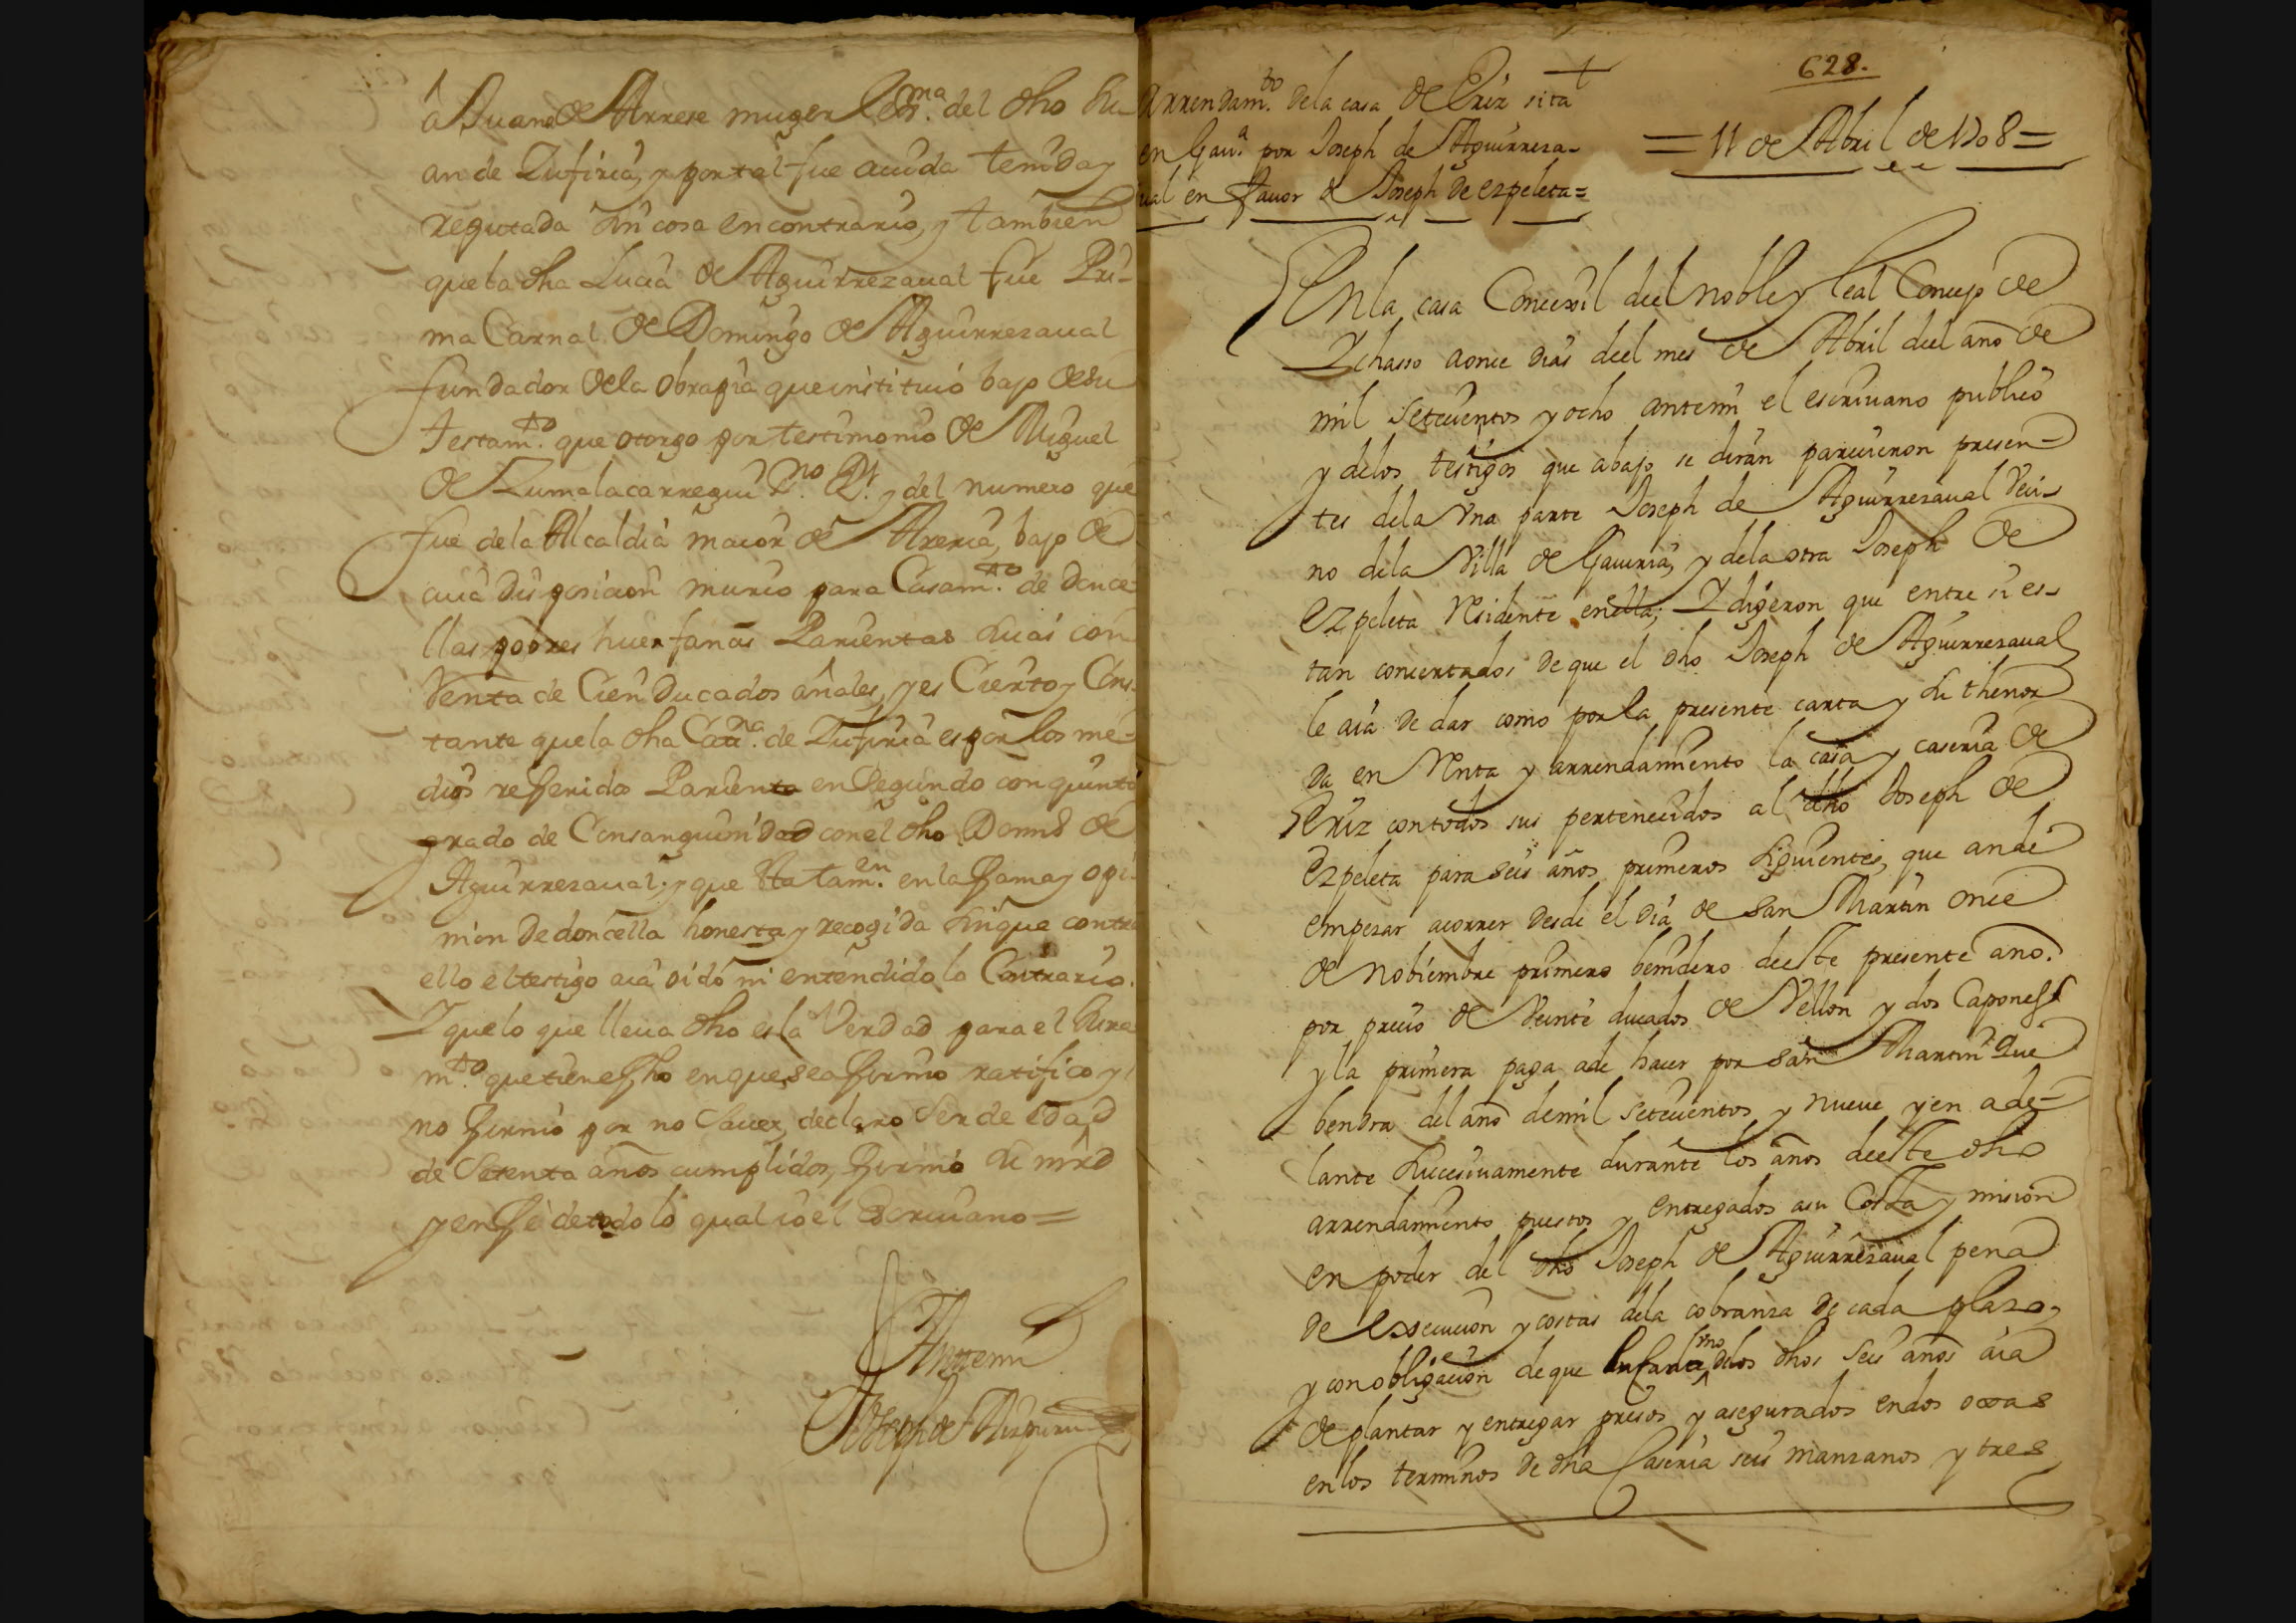 a Juana de Arrese muger Lexma. del dho Ju
an de Zufiria, y por tal fue auida tenida y
reputada sin cosa en contrario, y tambien
que la dha Luçia de Aguirrezaual fue Pri-
ma Carnal de Domingo de Aguirrezaual
fundador de la obrapia que instituió bajo de su
testamto. que otorgo por testimonio de Miguel
de Zumalacarregui no. Rl. y del numero que
fue de la Alcaldia maior de Areria, bajo de
cuia disposicion murio para Casamto. de donce
llas pobres huerfanas Parientas suias con
Renta de Cien Ducados añales, y es Cierto y Cons-
tante que la dha Catna. de Zufiria es por los me-
dios refferidos Parienta en Segundo con quinto
grado de Consanguinidad con el dho Domo de
Aguirrezaual; y que esta tamen. en la ffama y opi-
nion de doncella honesta y recogida sin que contra
ello el testigo aia oido ni entendido lo Contrario.
Y que lo que lleua dho es la Verdad para el Jura
mto. que tiene ffho en que se affirmo ratifico y
no ffirmó por no Sauer, declaro Ser de edad
de Setenta años cumplidos, ffirmó su mrd
y en ffe de todo lo qual io el Escriuano=
Antemi
Joseph de Aizpuru
628.
Arrendamto. de la casa de Eriz sita
en Gaua. por Joseph de Aguirreza-
ual en fauor de Joseph de ezpeleta=
= 11 de Abril de 1708 =
En la casa Concexil del noble y leal Concejo de
Ychasso a once dias del mes de Abril del año de
mil setecientos y ocho ante mi el escriuano publico
y de los testigos que abajo se diran parecieron presen-
tes de la vna parte Joseph de Aguirrezaual veci-
no de la Villa de Gauiria, y de la otra Joseph de
Ezpeleta residente en ella; Y digeron que entre si es-
tan concertados de que el dho Joseph de Aguirrezaual
le aia de dar como por la presente carta y su thenor
da en renta y arrendamiento la casa y caseria de
Eriz con todos sus pertenecidos al dho Joseph de
Ezpeleta para seis años primeros siguientes, que an de
empezar a correr desde el dia de San Martin once
de nobiembre primero benidero de este presente año.
por precio de veinte ducados de vellon y dos Capones
y la primera paga a de hacer por san Martin que
bendra del año de mil setecientos y nueue y en ade-
lante sucesiuamente durante los años de este dho
arrendamiento puestos y entregados a su Costa y mision
en poder del dho Joseph de Aguirrezaual pena
de execucion y costas de la cobranza de cada plazo,
y con obligacion de que en cada vno de los dhos seis años aia
de plantar y entregar presos y asegurados en dos ojas
en los terminos de dha Caseria seis manzanos y tres